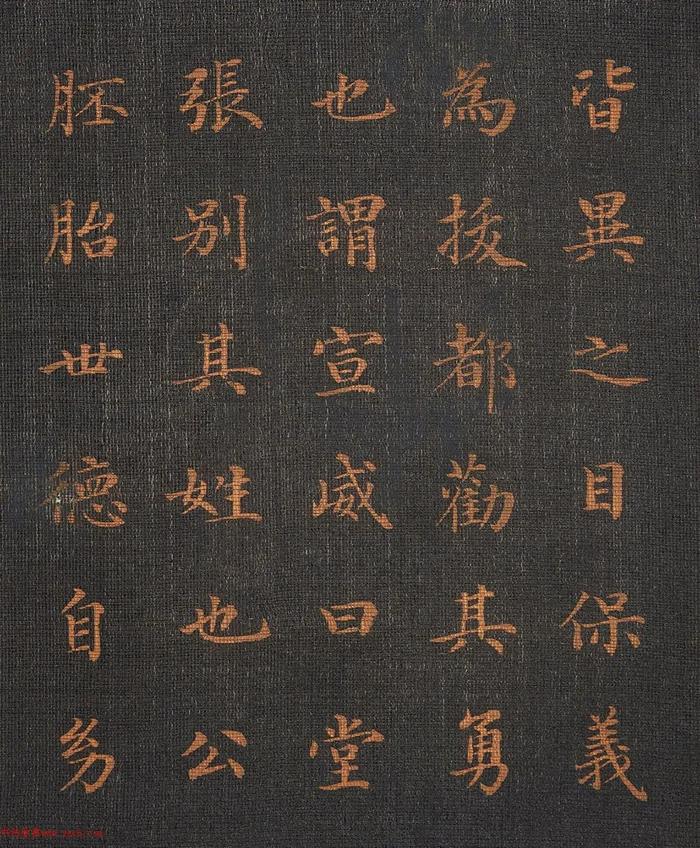 皆異之目保義
為拔都勸其勇
也謂宣威曰堂
張别其姓也公
胚胎世德自㓜